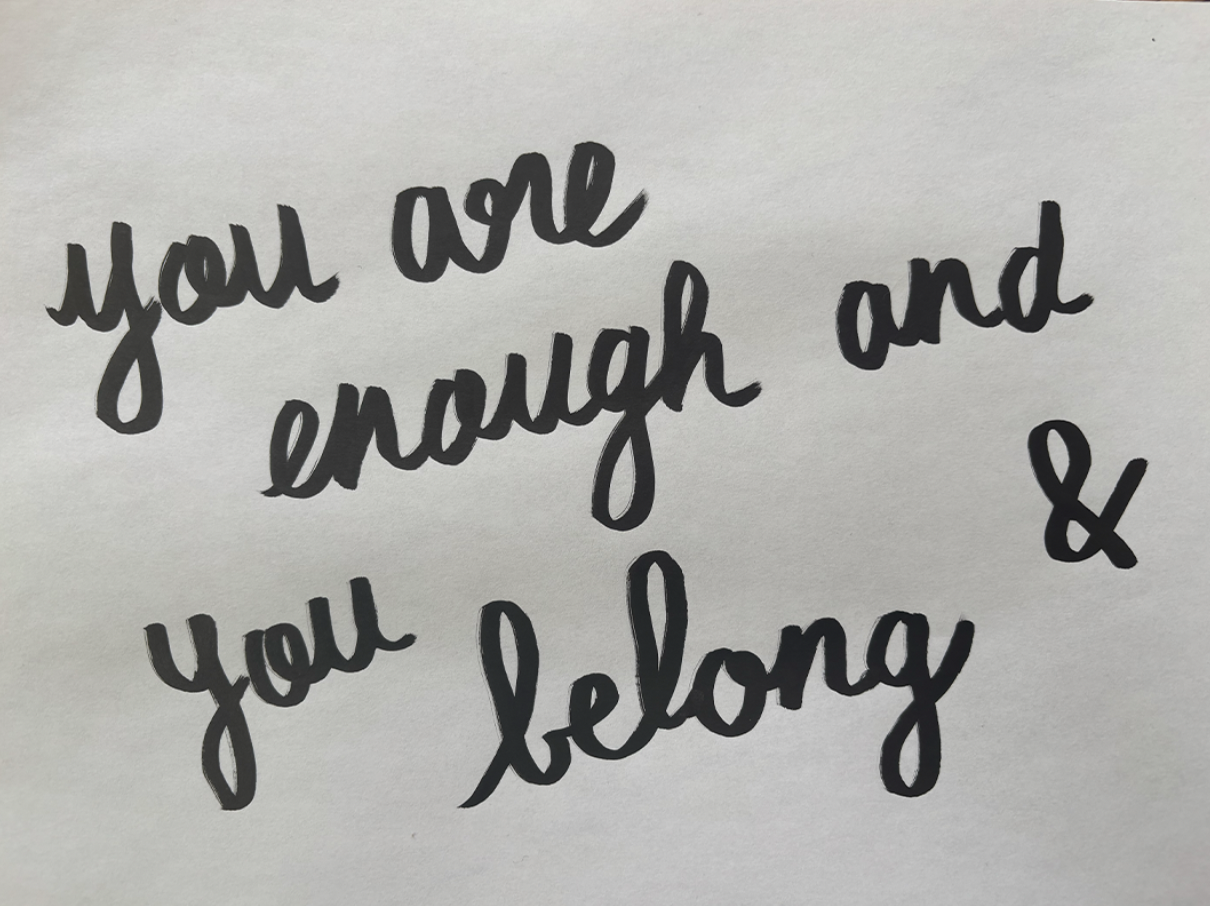 you are
enough and
&
you belong